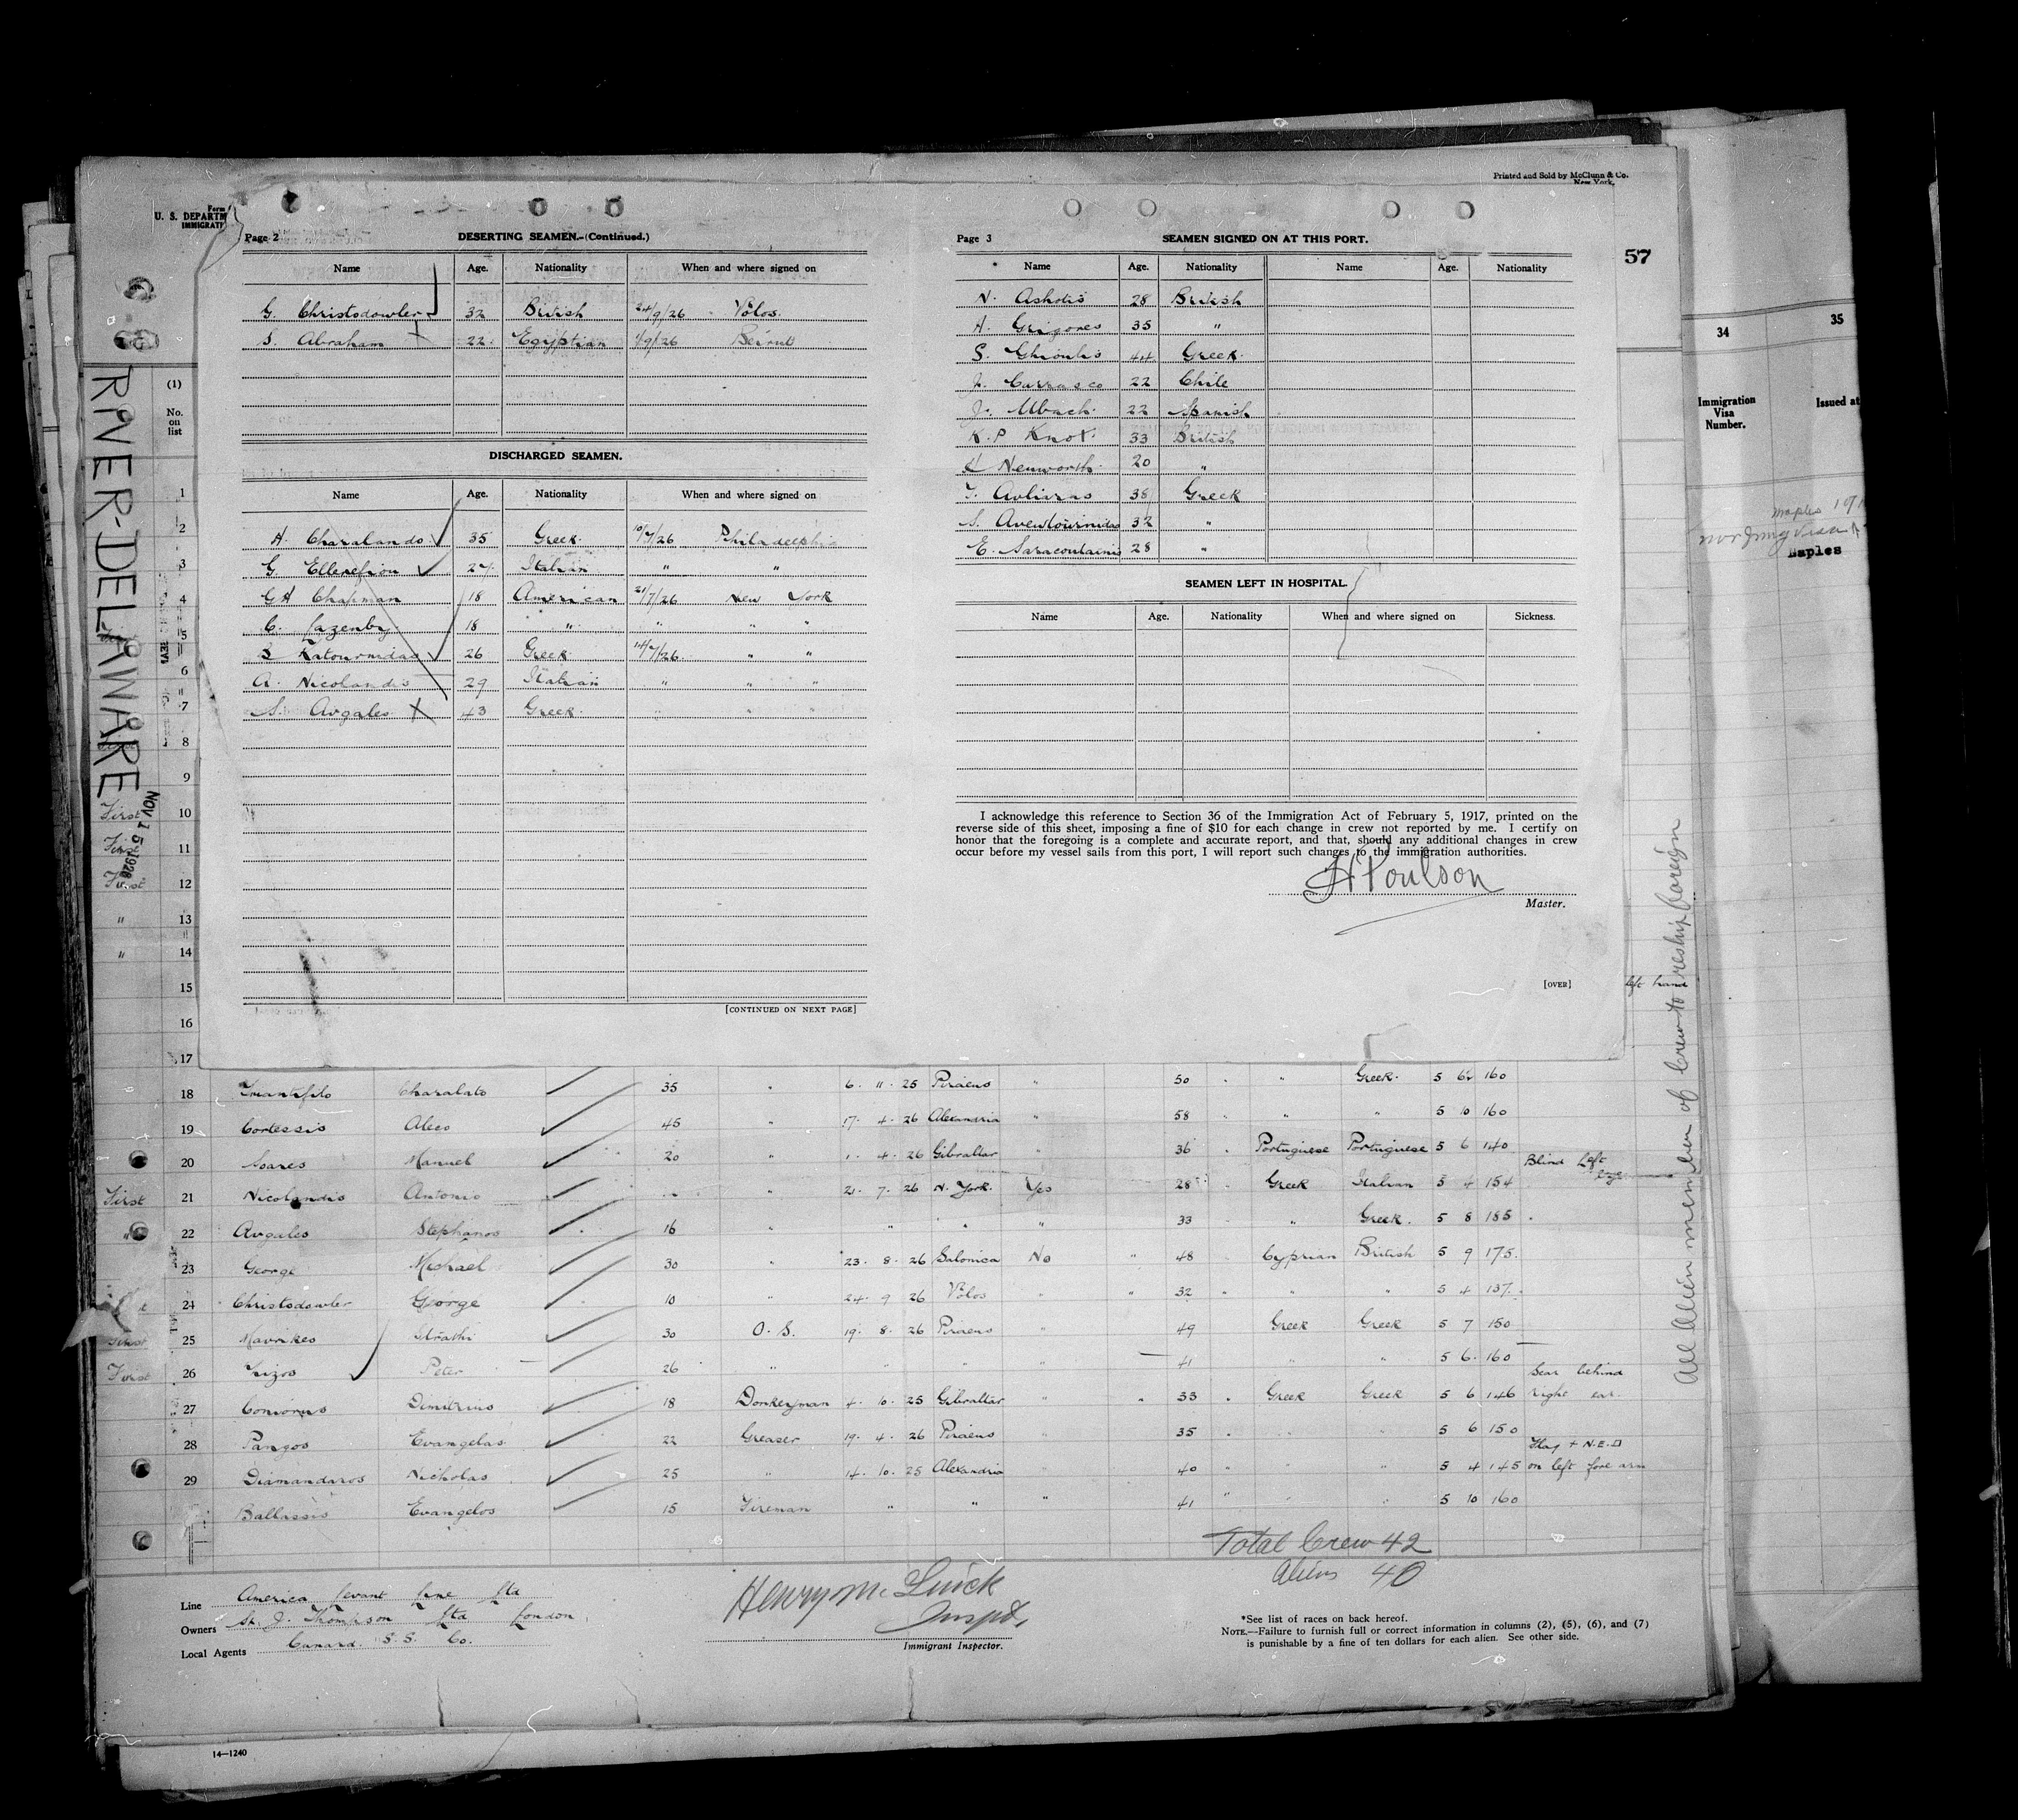 Printed and Sold by McClunn & Co.
New York.
Form
U. S. DEPARTM
IMMIGRATI
57
RIVER-DELAWARE
NOV 15 1926
Page 2 DESERTING SEAMEN.—(Continued.)
Name Age. Nationality When and where signed on
G. Christodowler 32 British 24/9/26 " Volos.
S. Abraham 22 Egyptian 1/9/26 Beirut
DISCHARGED SEAMEN.
Name Age. Nationality When and where signed on
H. Charalando 35 Greek 10/7/26 Philadelphia
G. Ellerefion 27 Italian " "
GH Chapman 18 American 21/7/26 New York
C. Lazenby 18 " " " "
S Katournidas 26 Greek 14/7/26 " "
A. Nicolandis 29 Italian " " "
S. Avgales X 43 Greek " " "
[CONTINUED ON NEXT PAGE]
Page 3 SEAMEN SIGNED ON AT THIS PORT.
Name Age. Nationality Name Age. Nationality
N. Ashotis 28 British
H. Grigores 35 "
S. Ghioulis 44 Greek
J. Carrasco 22 Chile
J. Ubach 22 Spanish
K.P Knot 33 British
H Nenworth 20 "
T. Avlivras 38 Greek
S. 32 "
E. Saracoulainis 28 "
SEAMEN LEFT IN HOSPITAL.
Name Age. Nationality When and where signed on Sickness.
I acknowledge this reference to Section 36 of the Immigration Act of February 5, 1917, printed on the
reverse side of this sheet, imposing a fine of $10 for each change in crew not reported by me. I certify on
honor that the foregoing is a complete and accurate report, and that, should any additional changes in crew
occur before my vessel sails from this port, I will report such changes to the immigration authorities.
H Poulson
Master.
[OVER]
34 35
Immigration Visa Number. Issued at
Naples
(1)
No. on list
1
2
3
4
5
6
7
8
9
First 10
First 11
First 12
" 13
" 14
15 left hand
16
17
18 Triantifilo Charalato 35 " 6 . 11 . 25 Piraeus " 50 " " Greek 5 6½ 160
19 Cortessis Aleco 45 " 17 . 4 . 26 Alexandria " 58 " " " 5 10 160
20 Soares Manuel 20 " 1 . 4 . 26 Gibraltar " 36 " Portuguese Portuguese 5 6 140 Blind Left Eye
First 21 Nicolandis Antonio " " 21 . 7 . 26 N. York. Yes 28 " Greek Italian 5 4 154
" 22 Avgales Stephanos 16 " " " " 33 " Greek 5 8 185
23 George Michael 30 " 23 . 8 . 26 Salonica No " 48 Cyprian British 5 9 175
24 Christodowler George 10 " 24 . 9 26 Volos " " 32 " " " 5 4 137
First 25 Mavrikeo Strathi 30 O. S. 19 . 8 . 26 Piraeus " 49 Greek Greek 5 7 150
First 26 Lizos Peter 26 " " " " 41 " " 5 6 160
27 Comorus Dimitrius 18 Donkeyman 4 . 10 . 25 Gibraltar " " 33 " Greek Greek 5 6 146 Scar behind right ear.
28 Pangos Evangelas 22 Greaser 19 . 4 . 26 Piraeus " 35 " " " 5 6 150
29 Diamandaros Nicholas 25 " 14 . 10 . 25 Alexandria " 40 " " " 5 4 145 Flag + N.E.D on left fore arm
Ballassis Evangelos 15 Fireman " " " 41 " " " 5 10 160
All Alien members of Crew to reship foreign
Total Crew 42
Aliens 40
Line America Levant Line Ltd
Owners St. J. Thompson Ltd London
Local Agents Cunard S.S. Co.
Henry M. Quick
Inspt.
Immigrant Inspector.
*See list of races on back hereof.
NOTE.—Failure to furnish full or correct information in columns (2), (5), (6), and (7)
is punishable by a fine of ten dollars for each alien. See other side.
14—1240